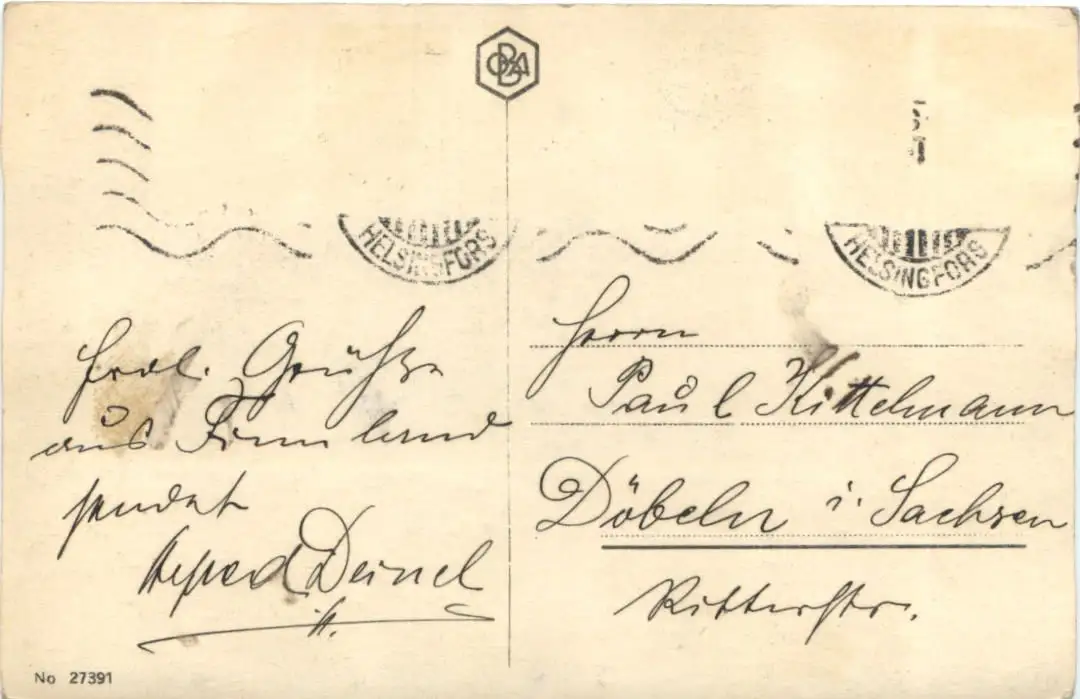 HELSINGFORS
HELSINGFORS
frdl. Grüße
aus Finnland
sendet
Alfred Deinel
Herrn
Paul Kittelmann
Döbeln i. Sachsen
Ritterstr.
No 27391